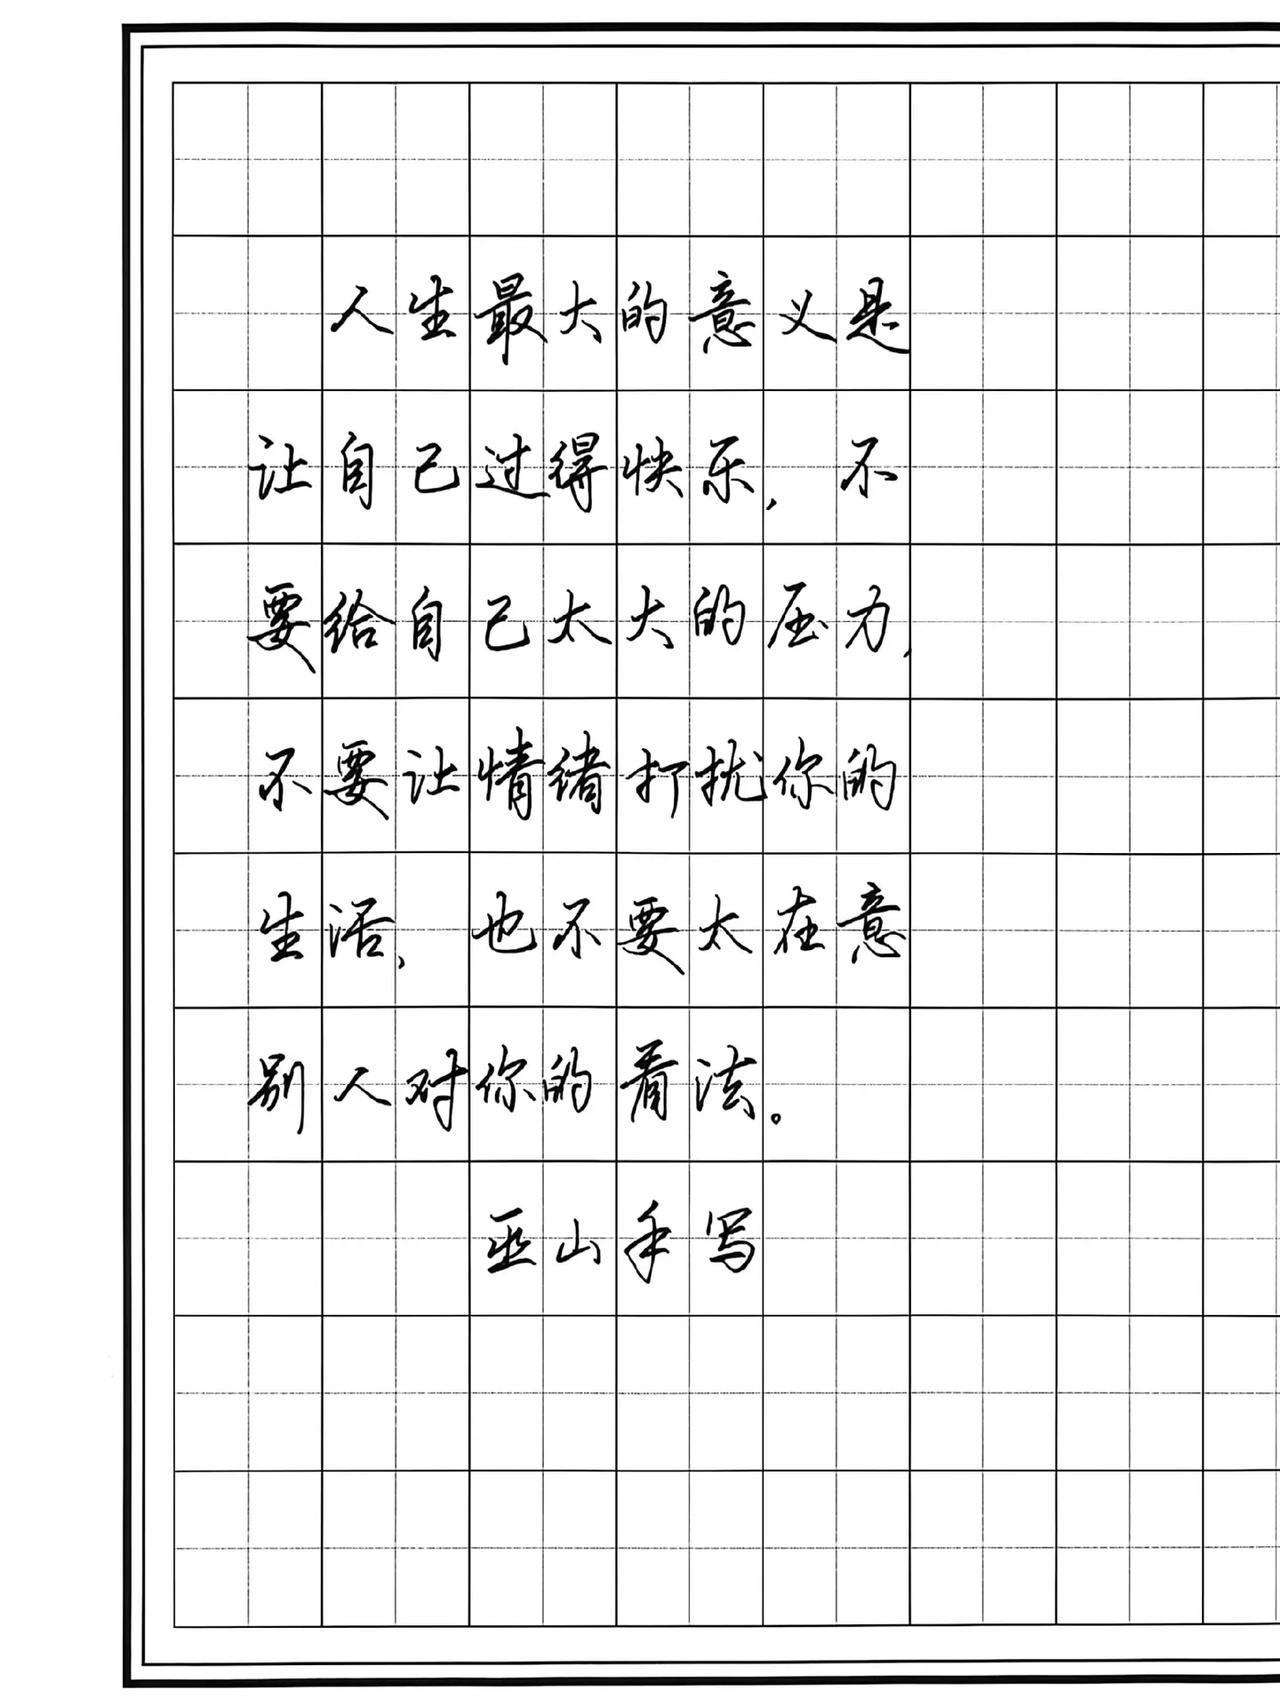 人生最大的意义是
让自己过得快乐，不
要给自己太大的压力，
不要让情绪打扰你的
生活，也不要太在意
别人对你的看法。
巫山手写